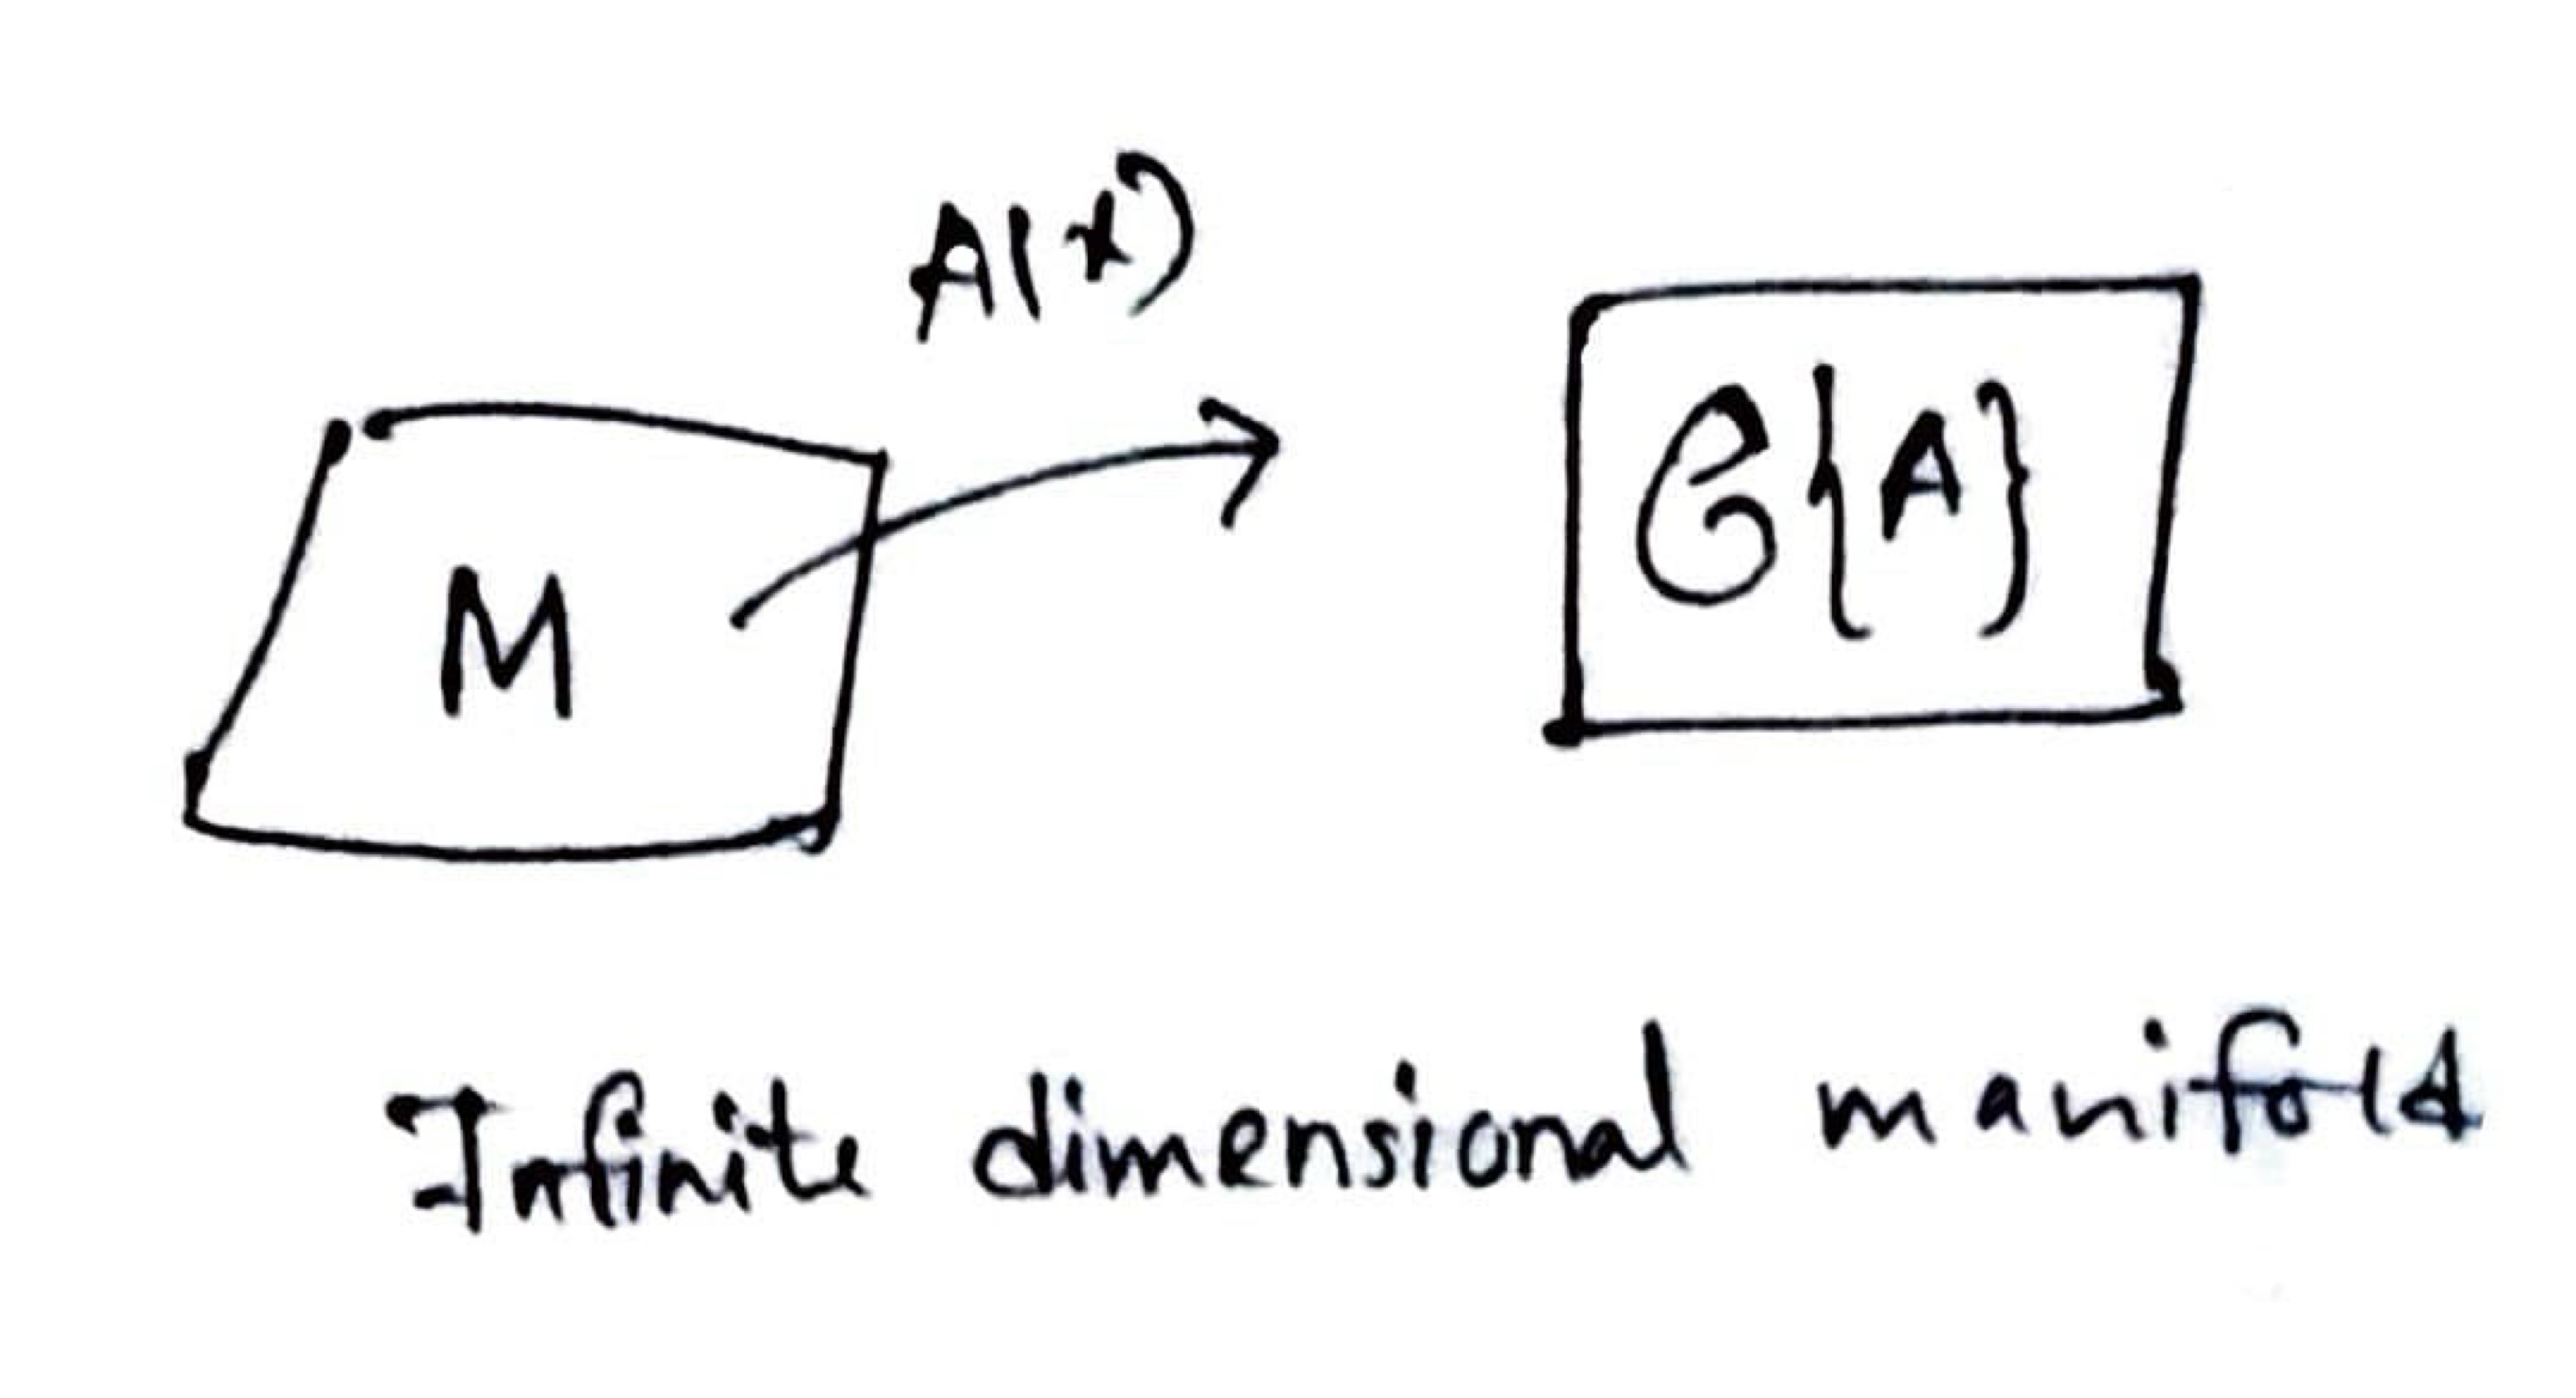 A(x)
M
G{A}
Infinite dimensional manifold